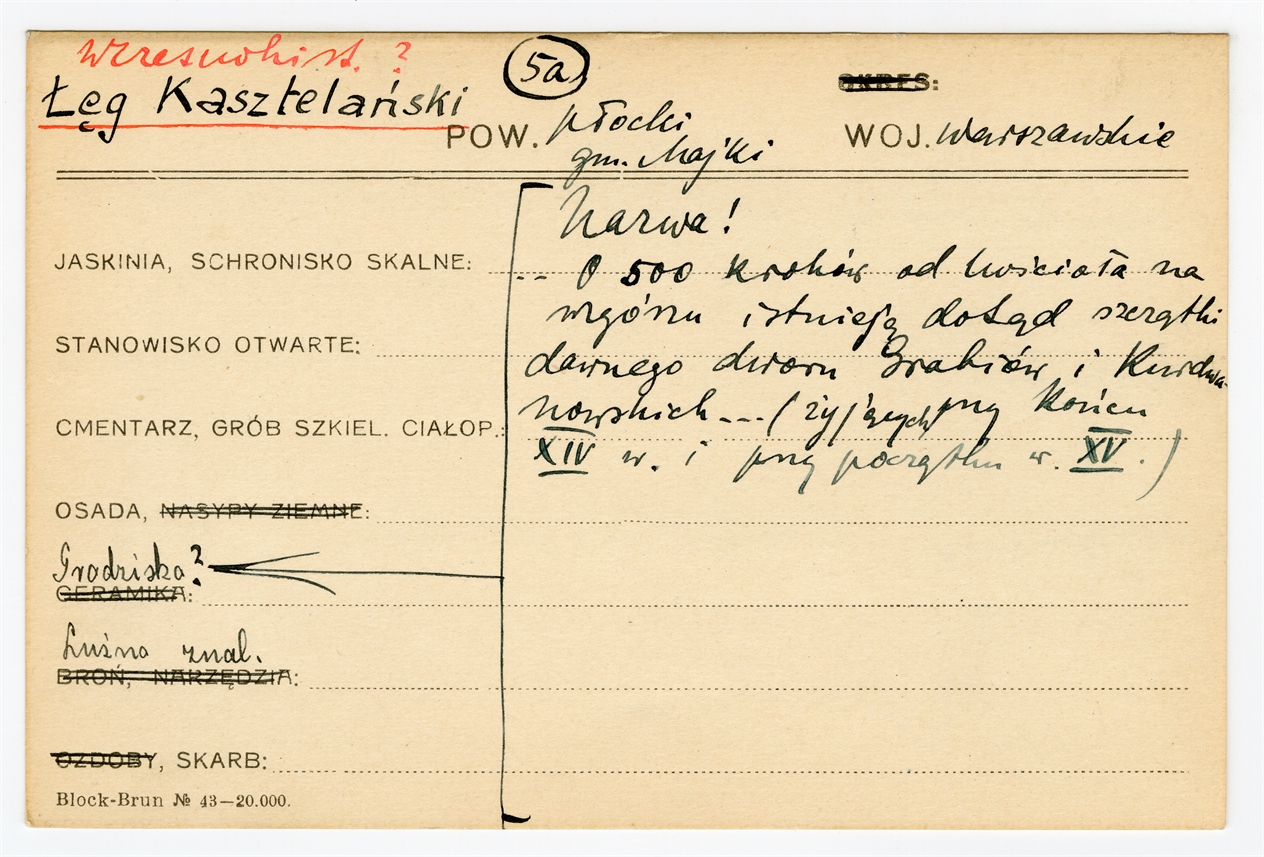 Wczesnohist. ?
5a
OKRES:
Łęg Kasztelański
POW. płocki
gm. Majki
WOJ. warszawskie
Nazwa!
JASKINIA, SCHRONISKO SKALNE:
-- O 500 kroków od kościoła na
wzgórzu istnieją dotąd szczątki
STANOWISKO OTWARTE:
dawnego dworu Grabiów i Kurdwa-
nowskich --- (żyjących przy końcu
CMENTARZ, GRÓB SZKIEL. CIAŁOP.:
XIV w. i przy początku w. XV.)
OSADA, NASYPY ZIEMNE:
Grodziska?
CERAMIKA:
Luźno znal.
BROŃ, NARZĘDZIA:
OZDOBY, SKARB:
Block-Brun № 43—20.000.